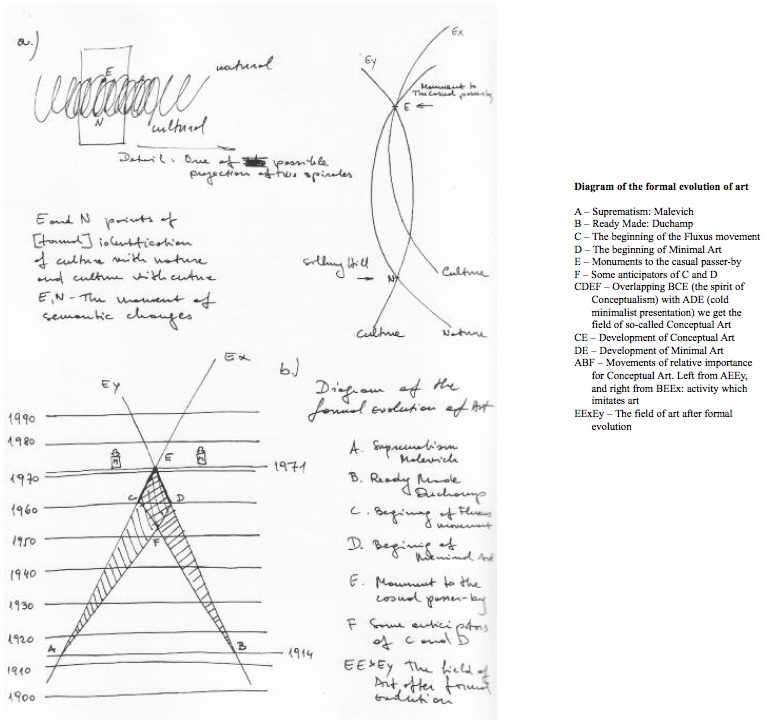 a.)
E
N
natural
cultural
Detail: One of possible
projection of two spirales
E and N points of
[formal] identification
of culture with nature
and culture with cuture
E, N - The moment of
semantic changes
Ex
Ey
Monument to
The casual passer-by
E
Silbury Hill
N
Culture
Culture
Nature
b.)
Diagram of the
formal evolution of Art
Ey
Ex
1990
1980
1970
1960
1950
1940
1930
1920
1910
1900
E
1971
C
D
F
A
B
1914
A. Suprematism
Malevich
B. Ready Made
Duchamp
C. Begining of Fluxus
movement
D. Begining of
Minimal Art
E. Monument to the
casual passer-by
F Some anticiptors
of C and D
EExEy The field of
Art after formal
evolution
Diagram of the formal evolution of art
A – Suprematism: Malevich
B – Ready Made: Duchamp
C – The beginning of the Fluxus movement
D – The beginning of Minimal Art
E – Monuments to the casual passer-by
F – Some anticipators of C and D
CDEF – Overlapping BCE (the spirit of
Conceptualism) with ADE (cold
minimalist presentation) we get the
field of so-called Conceptual Art
CE – Development of Conceptual Art
DE – Development of Minimal Art
ABF – Movements of relative importance
for Conceptual Art. Left from AEEy,
and right from BEEx: activity which
imitates art
EExEy – The field of art after formal
evolution